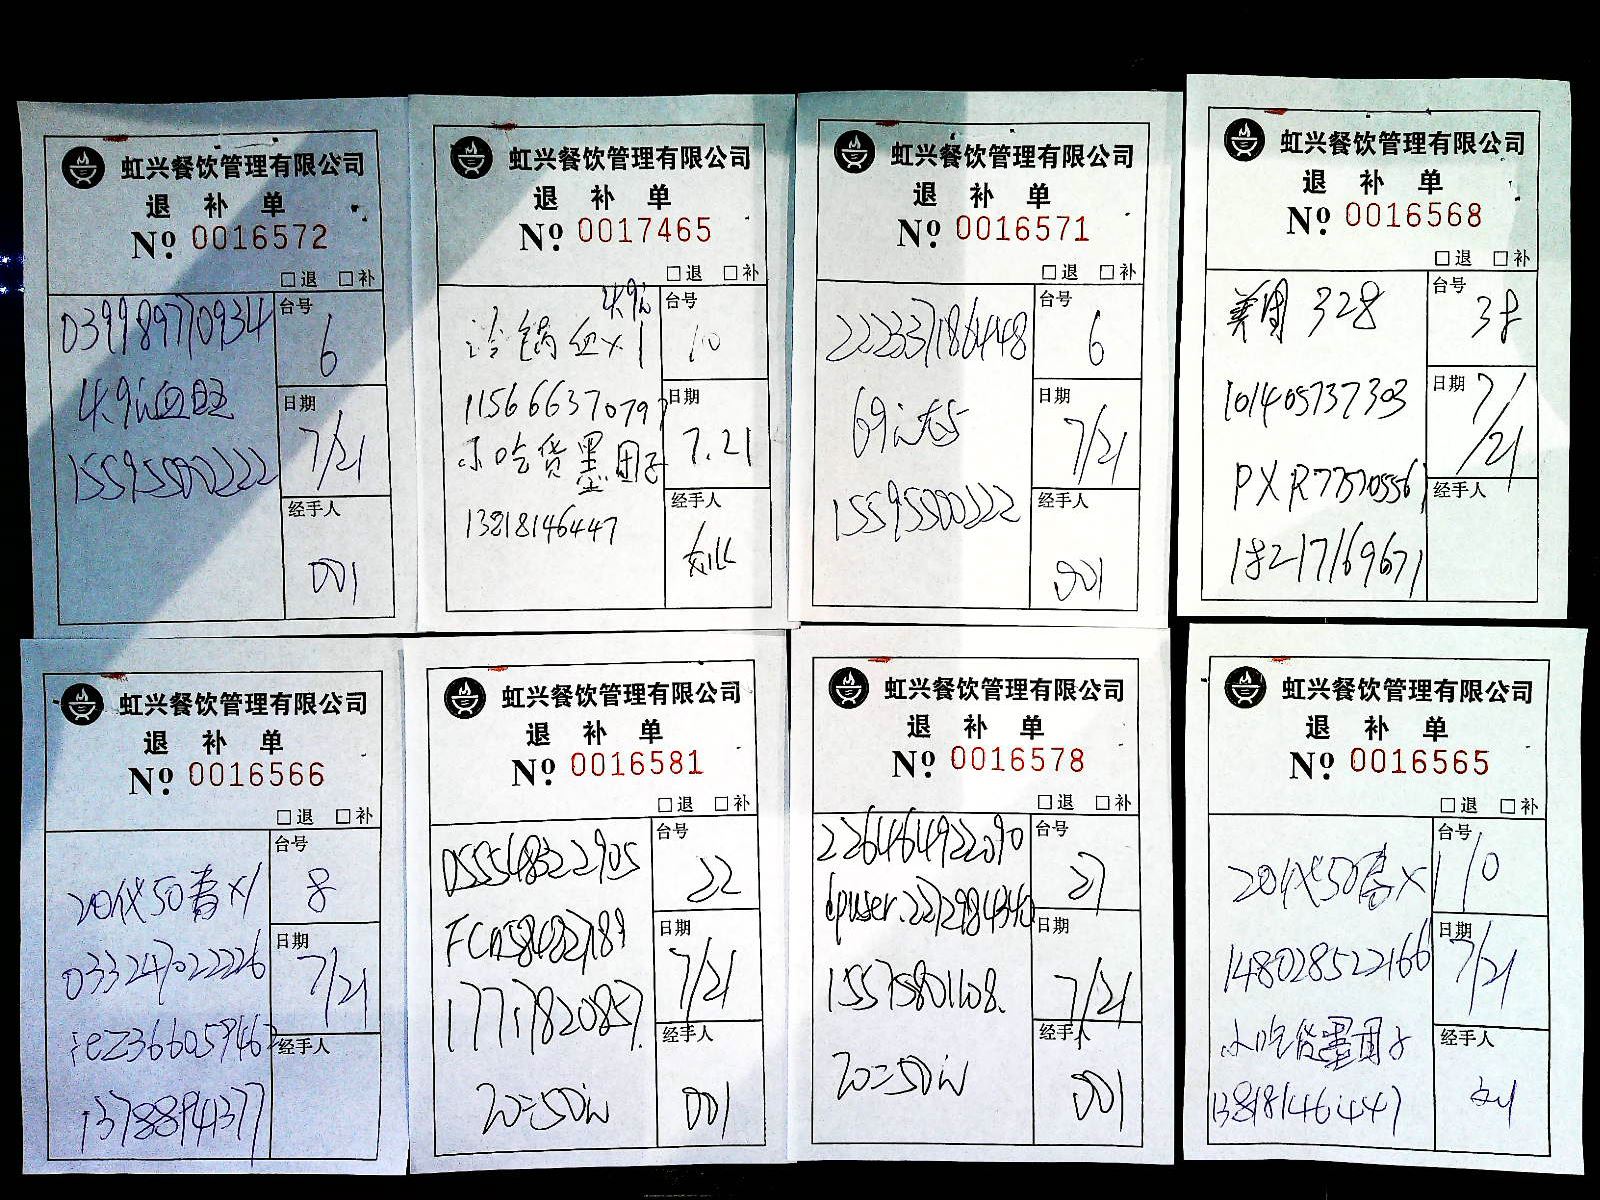 虹兴餐饮管理有限公司
退 补 单
Nº 0016572
□退 □补
039989770934
台号
6
4.9近血旺
日期
7/21
15595500222
经手人
001
虹兴餐饮管理有限公司
退 补 单
Nº 0017465
□退 □补
4.9
冷锅血x1
台号
10
115666370797
日期
7.21
小吃货墨团子
13818146447
经手人
虹兴餐饮管理有限公司
退 补 单
Nº 0016571
□退 □补
222337186448
台号
6
69
日期
7/21
15595500222
经手人
001
虹兴餐饮管理有限公司
退 补 单
Nº 0016568
□退 □补
美团 328
台号
38
101405737303
日期
7/21
PXR775705561
经手人
18217169671
虹兴餐饮管理有限公司
退 补 单
Nº 0016566
□退 □补
20代50青x1
台号
8
033247022226
日期
7/21
iez366059462
经手人
13788941377
虹兴餐饮管理有限公司
退 补 单
Nº 0016581
□退 □补
055548322905
台号
22
FCn58482189
日期
7/21
17717820857.
经手人
20=50
001
虹兴餐饮管理有限公司
退 补 单
Nº 0016578
□退 □补
226464922090
台号
27
dpuser.2272984340
日期
7/21
15575801108.
经手人
20=50
001
虹兴餐饮管理有限公司
退 补 单
Nº 0016565
□退 □补
20代50青x1
台号
10
148028522166
日期
7/21
小吃货墨团子
经手人
13818146447